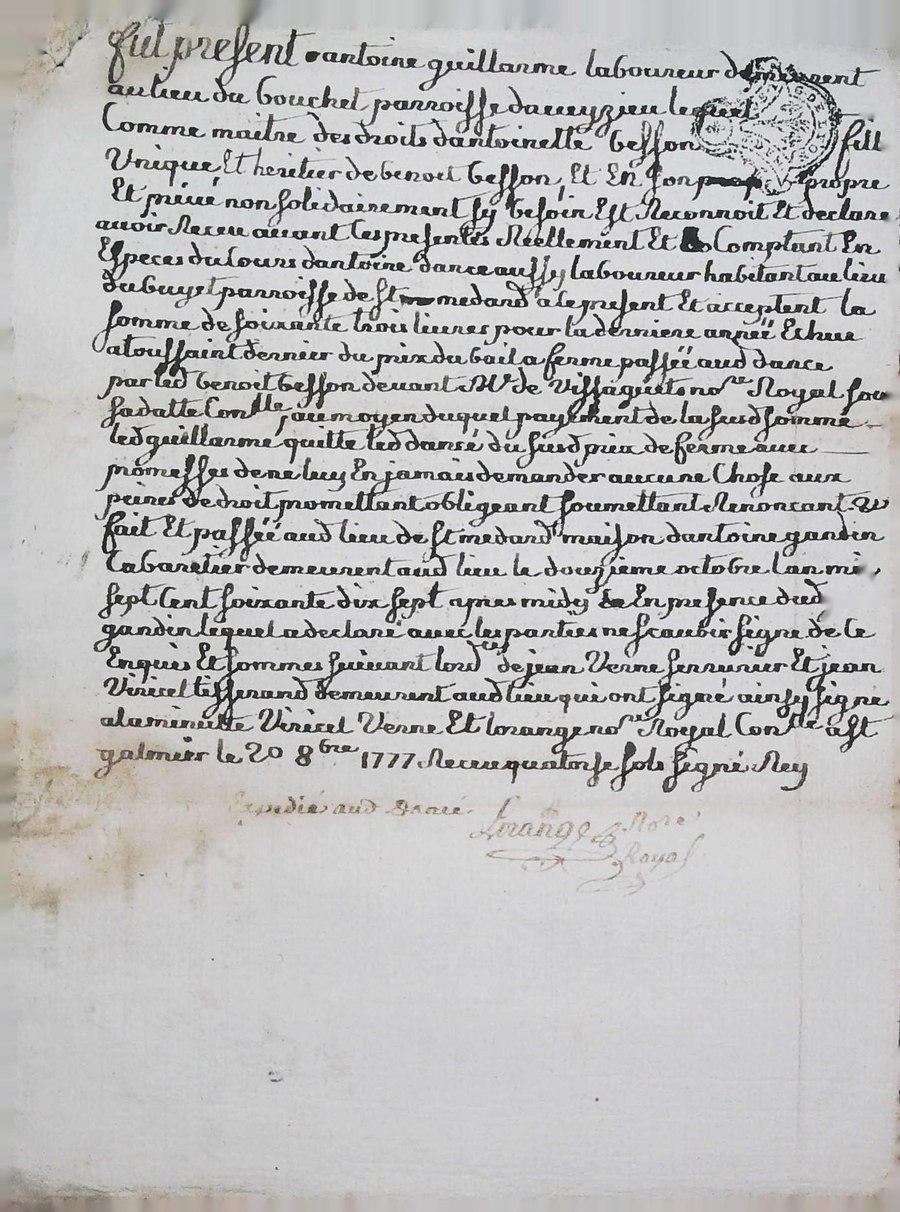 fut present antoine guillarme laboureur demeurent
au lieu du bouchet parroisse daveyzieu lequel
Comme maitre des droits dantoinette besson fille
Unique Et heritier de benoit besson, Et En son propre
Et privé non solidairement sy besoin Est Reconnoit Et declare
avoir Receu avant Ces presentes Réellement Et Comptant En
Especes du Cours dantoine dance aussy laboureur habitant au lieu
du buyet parroisse de st medard a ce present Et acceptent la
somme de soixante trois livres pour la derniere année Echue
a toussaint dernier du prix du bail a ferme passéé aud dance
par led benoit besson devant Me de Vissaguets nore Royal sou
sa datte Conlle, au moyen duquel payement de la susd somme
led guillarme quitte led dance du susd prix de ferme avec
promesses de ne luy En jamais demander aucune Chose aux
peines de droit promettant obligeant soumettant Renoncant &
fait Et passéé aud lieu de st medard maison dantoine gandin
Cabaretier demeurent aud lieu le douzieme octobre lan mil
sept Cent soixante dix sept apres midy En presence dud
gandin lequel a declaré avec les parties ne scavoir signe de Ce
Enquis Et sommes suivant lordce de jean Verne serrurier Et jean
Viricel tisserand demeurent aud lieu qui ont signé ainsy signe
a la minutte Viricel Verne Et lorange nore Royal Conlle a st
galmier le 20 8bre 1777 Receu quatorse sols signé Rey
Expedié aud dance
Lorange Nore
Royal